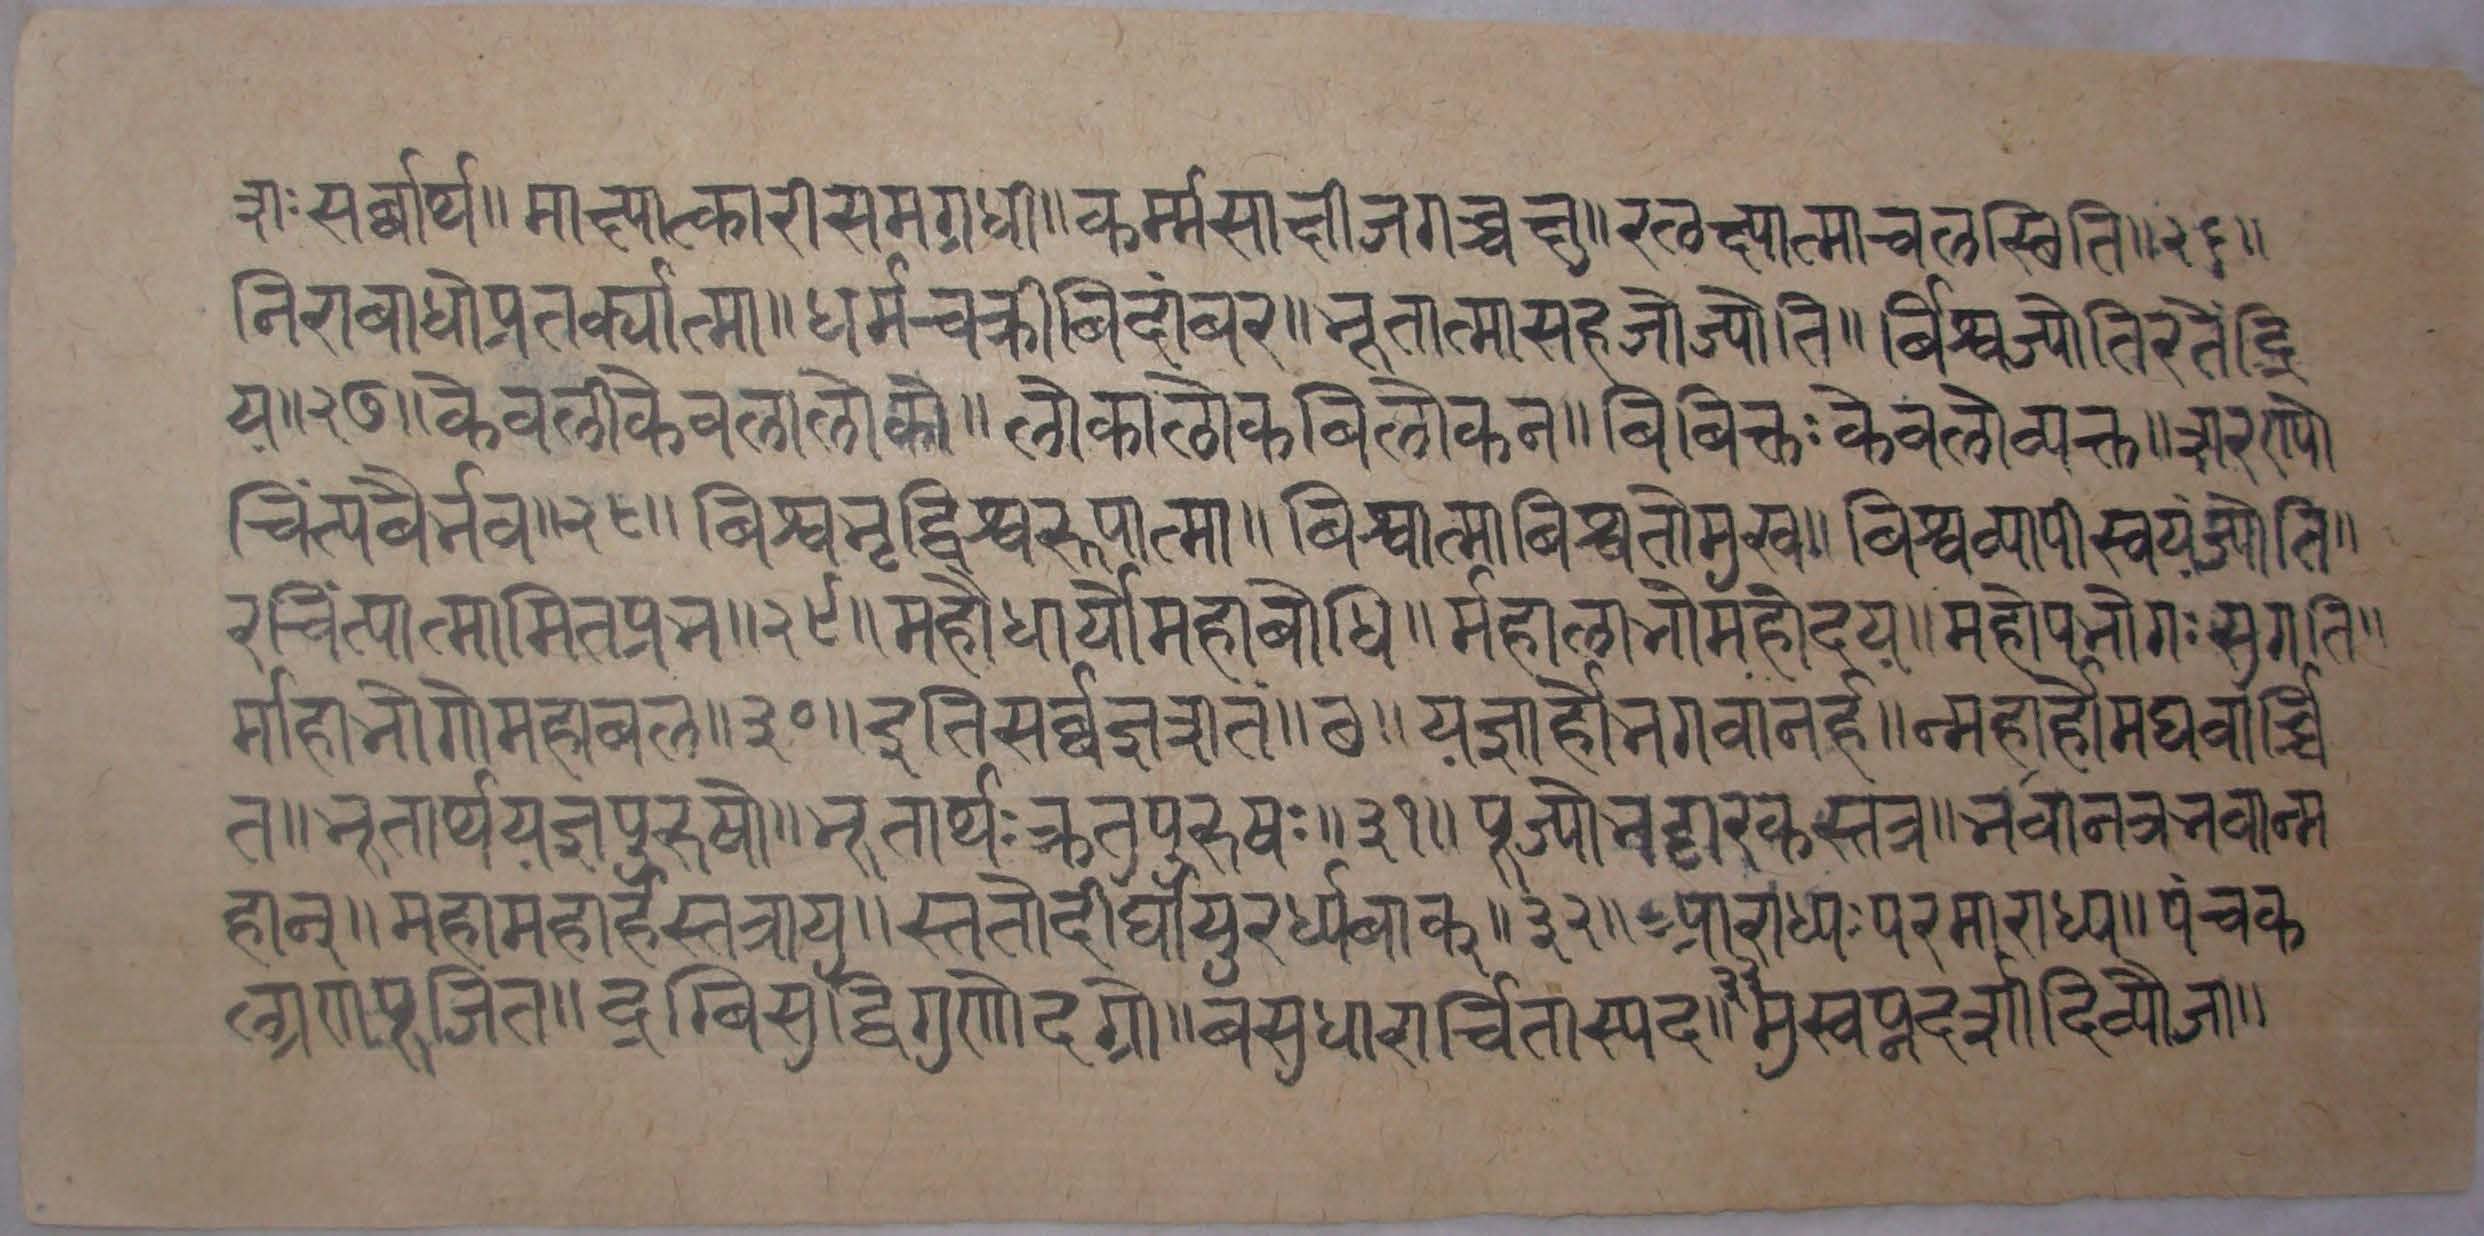 शः सर्व्वार्थ॥ माक्ष्यात्कारी समग्रधी॥ कर्म्मसाक्षी जगच्चक्षु॥ रलक्ष्यात्माचलस्थिति॥२६॥
निराबाधोप्रतर्क्यात्मा॥ धर्मचक्री बिदांबर॥ भूतात्मा सहजोज्योति॥ र्बिश्वज्योतिरतेंद्रि
य॥२७॥ केवली केवलालोको॥ लोकालोकबिलोकन॥ बिबिक्तः केवलोव्यक्त॥ शरण्यो
चिंत्यबैर्भव॥२८॥ बिश्वभृद्विश्वरूपात्मा॥ बिश्वात्मा बिश्वतोमुख॥ बिश्वव्यापी स्वयंज्योति॥
रचिंत्यात्मामितप्रभ॥२९॥ महौधार्यो महाबोधि॥ र्महालाभो महोदय॥ महोपभोगः सुगति॥
र्माहाभोगो महाबल॥३०॥ इति सर्व्वज्ञशतं॥ब॥ यज्ञार्हो भगवानर्ह॥ न्महार्हो मघवार्च्चि
त॥ भूतार्थयज्ञपुरुषो॥ भूतार्थः क्रतुपुरुषः॥३१॥ पूज्यो भट्टारकस्तत्र॥ भवानत्रभवान्म
हान्॥ महामहार्हस्तत्रायु॥ स्ततो दीर्घायुरर्ध्यबाक्॥३२॥ प्राराध्यः परमाराध्य॥ पंचक
ल्याणपूजित॥ दृग्बिसुद्धिगुणोदग्रो॥ बसुधारार्चितास्पद॥३३ मुस्वप्नदर्शी दिव्यौजा॥